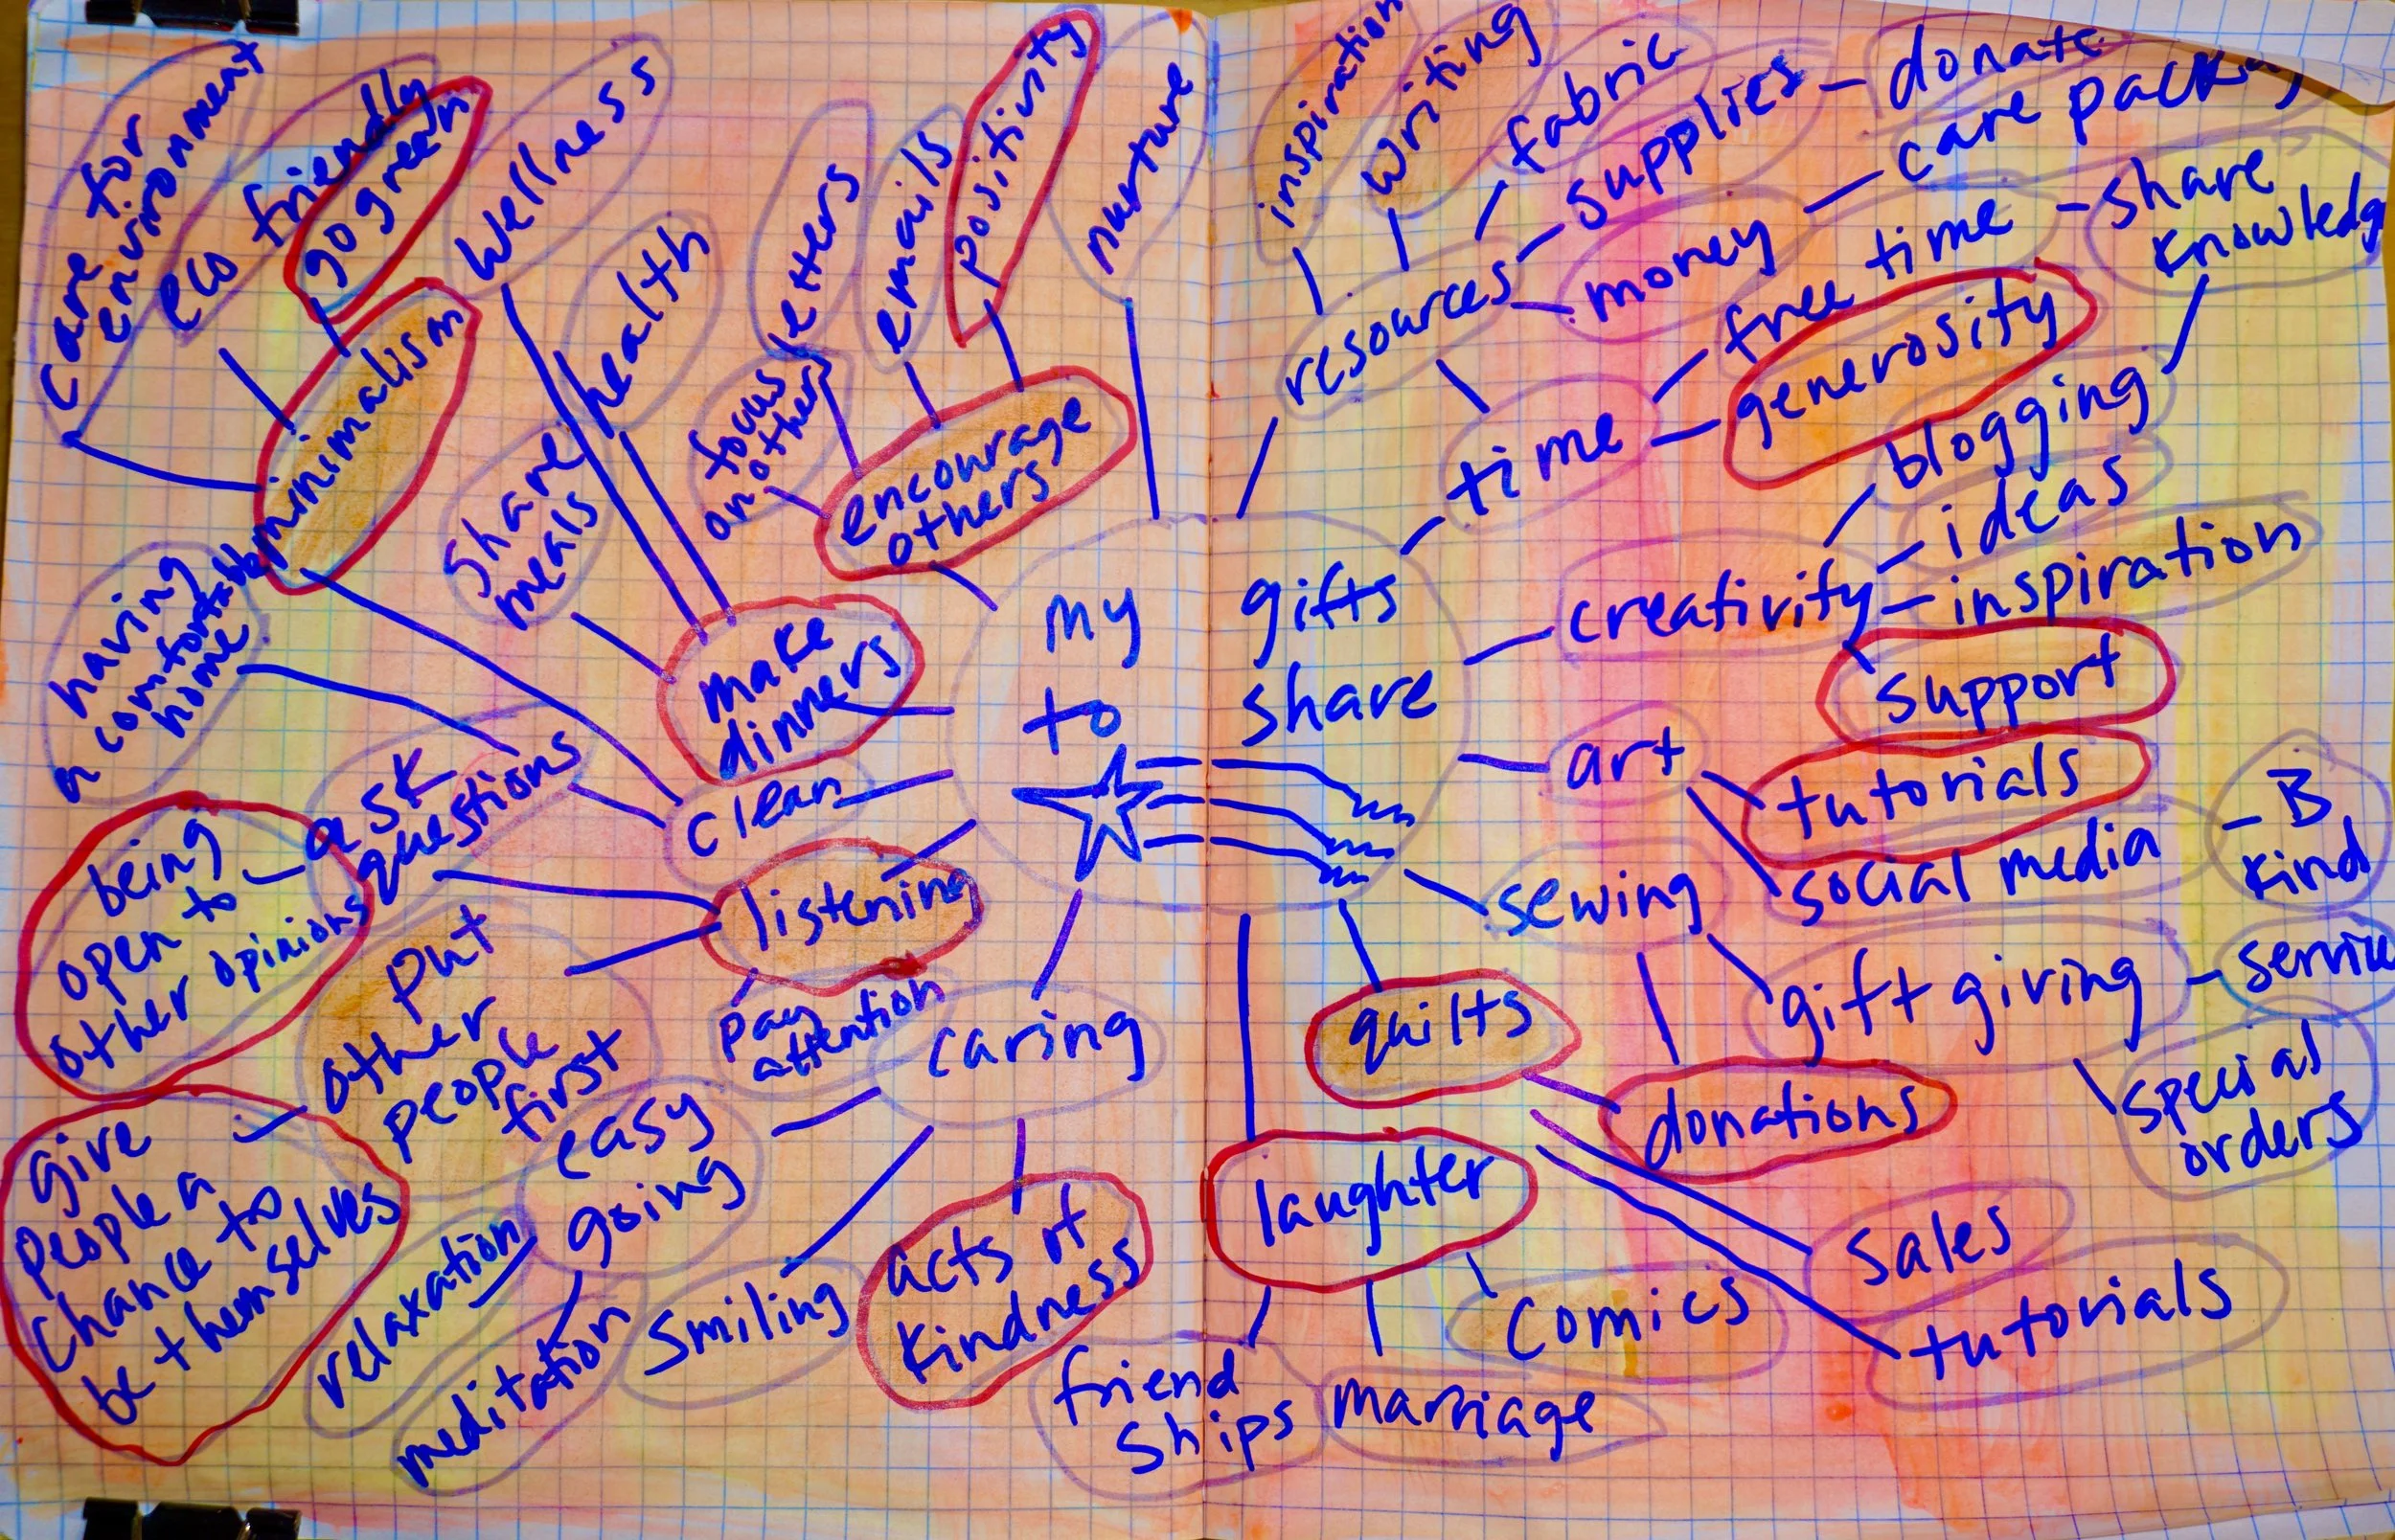 my gifts
to share
care for
environment
eco friendly
go green
minimalism
wellness
health
share
meals
make
dinners
letters
emails
positivity
nurture
focus
on others
encourage
others
having
a comfortable
home
clean
ask
questions
being
open to
other opinions
listening
put
other
people
first
pay
attention
give
people a
chance to
be themselves
caring
easy
going
relaxation
meditation
smiling
acts of
kindness
inspiration
writing
fabric
supplies
donate
care packag
resources
money
free time
share
knowledg
time
generosity
blogging
ideas
creativity
inspiration
support
art
tutorials
social media
B
kind
sewing
gift giving
service
special
orders
quilts
donations
sales
tutorials
laughter
comics
friend
ships
marriage